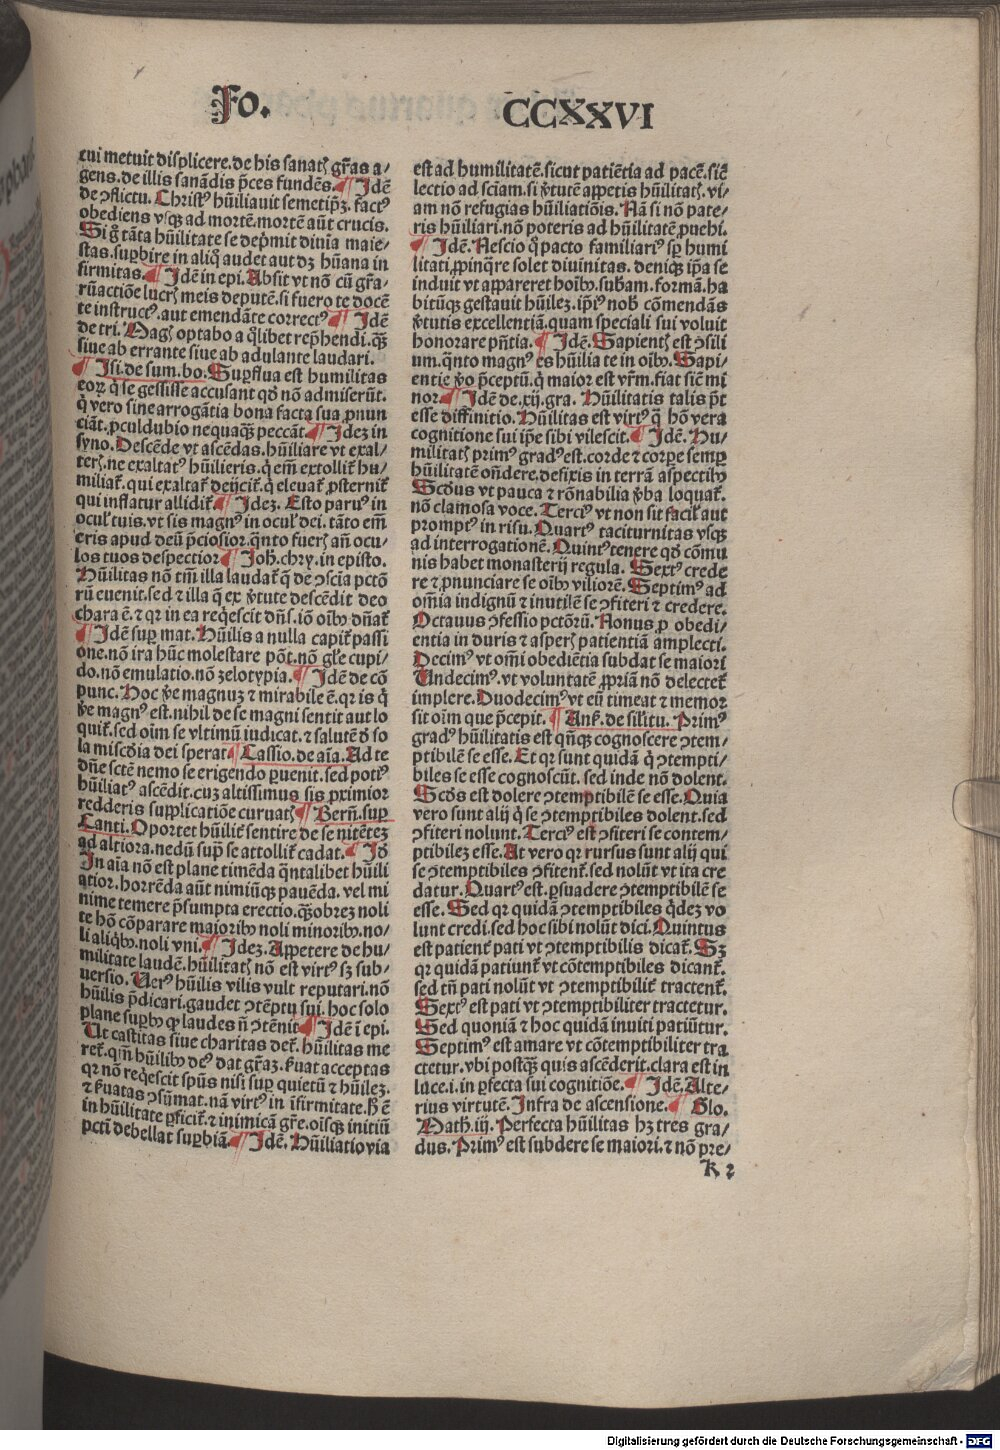 Fo. CCXXVI
cui metuit displicere. de his sanatꝭ gr̃as a⸗
gens. de illis sanãdis p̃ces fundẽs. ¶ Idẽ
de ꝯflictu. Christꝰ hũiliauit semetip̃ꝫ. factꝰ
obediens vsqꝫ ad mortẽ. mortẽ aũt crucis.
Si g̊ tãta hũilitate se dep̃mit diuĩa maie⸗
stas. suꝑbire in aliq̃ audet aut dꝫ hũana in
firmitas. ¶ Idẽ in epi. Absit vt nõ cũ gr̃a⸗
rũactiõe lucrꝭ meis deputẽ. si fuero te docẽ
te instructꝰ. aut emendãte correctꝰ ¶ Idẽ
de tri. Magꝭ optabo a q̃libet rep̃hendi. q̃ꝫ
siue ab errante siue ab adulante laudari.
¶ Isi. de sum. bo. Suꝑflua est humilitas
eoꝝ q̇ se gessisse accusant qđ nõ admiserũt.
q̇ vero sine arrogãtia bona facta sua ꝓnun
ciãt. ꝓculdubio nequaq̃ꝫ peccãt. ¶ Ideꝫ in
syno. Descẽde vt ascẽdas. hũiliare vt exal⸗
terꝭ. ne exaltatꝰ hũilieris. q̇ em̃ extollit᷑ hu⸗
miliat᷑. qui exaltat᷑ deijcit᷑. q̇ eleuat᷑ ꝓsternit᷑
qui inflatur allidit᷑. ¶ Ideꝫ. Esto paruꝰ in
ocul̕ tuis. vt sis magnꝰ in ocul̕ dei. tãto em̃
eris apud deũ p̃ciosior. q̃nto fuerꝭ añ ocu⸗
los tuos despectior ¶ Joh. chry. in episto.
Hũilitas nõ tm̃ illa laudat᷑ q̃ de ꝯscia pctõ
rũ euenit. sed ⁊ illa q̃ ex ꝟtute descẽdit deo
chara ẽ. ⁊ qꝛ in ea req̇escit dñs. iõ oĩbꝰ dñat᷑
¶ Idẽ suꝑ mat. Hũilis a nulla capit᷑ passi
one. nõ ira hũc molestare põt. nõ gl̕e cupi⸗
do. nõ emulatio. nõ zelotypia. ¶ Idẽ de cõ
punc. Hoc ꝟe magnuꝫ ⁊ mirabile ẽ. qꝛ is q̇
ꝟe magnꝰ est. nihil de se magni sentit aut lo
quit᷑. sed oĩm se vltimũ iudicat. ⁊ salutẽ đ so
la miscđia dei sperat ¶ Cassio. de aĩa. Ad te
dñe sctẽ nemo se erigendo ꝑuenit. sed potiꝰ
hũiliatꝰ ascẽdit. cuꝫ altissimus sis ꝓximior
redderis supplicatiõe curuatꝭ ¶ Berñ. suꝑ
Canti. Oportet hũilit̕ sentire de se nitẽteꝫ
ad altiora. nedũ sup̃ se attollit᷑ cadat. ¶ Iđ
In aĩa nõ est plane timẽda q̃ntalibet hũili
atior. horrẽda aũt nimiũqꝫ pauẽda. vel mi
nime temere p̃sumpta erectio. q̃ꝫobreꝫ noli
te hõ cõparare maioribꝰ noli minoribꝰ. no⸗
li aliq̇bꝰ. noli vni. ¶ Ideꝫ. Appetere de hu⸗
militate laudẽ. hũilitatꝭ nõ est virtꝰ sꝫ sub⸗
uersio. Uerꝰ hũilis vilis vult reputari. nõ
hũilis p̃dicari. gaudet ꝯtẽptu sui. hoc solo
plane suꝑbꝰ ꝙ laudes ñ ꝯtẽnit ¶ Idẽ ĩ epi.
Ut castitas siue charitas det᷑. hũilitas me
ret᷑. qm̃ hũilibꝰ deꝰ dat gr̃aꝫ. ẜuat acceptas
qꝛ nõ req̇escit spũs nisi suꝑ quietũ ⁊ hũileꝫ.
⁊ ẜuatas ꝯsũmat. nã virtꝰ in ĩfirmitate. ꝧ ẽ
in hũilitate ꝑficit᷑. ⁊ inimicã gr̃e. oĩsqꝫ initiũ
pctĩ debellat suꝑbiã. ¶ Idẽ. Hũiliatio via
est ad humilitatẽ. sicut patiẽtia ad pacẽ. sic̃
lectio ad sciam. si ꝟtutẽ appetis hũilitatꝭ. vi⸗
am nõ refugias hũiliatiõis. Nã si nõ pate⸗
ris hũiliari. nõ poteris ad hũilitatẽ ꝓuehi.
¶ Idẽ. Nescio q̊ pacto familiariꝰ sp̃ humi
litati ꝓpinq̃re solet diuinitas. deniqꝫ ip̃a se
induit vt appareret hoĩbꝰ. sub̃am. formã. ha
bitũqꝫ gestauit hũileꝫ. ip̃iꝰ nob̕ cõmendãs
ꝟtutis excellentiã. quam speciali sui voluit
honorare pñtia. ¶ Idẽ. Sapientꝭ est ꝯsili
um. q̃nto magnꝰ es hũilia te in oĩbꝰ. Sapi⸗
entie ꝟo p̃ceptũ. q̇ maior est vr̃m. fiat sic̃ mi
nor. ¶ Idẽ de. xij. gra. Hũilitatis talis p̃t
esse diffinitio. Hũilitas est virtꝰ q̃ hõ vera
cognitione sui ip̃e sibi vilescit. ¶ Idẽ. Hu⸗
militatꝭ primꝰ gradꝰ est. corde ⁊ corꝑe semꝑ
hũilitatẽ oñdere. defixis in terrã aspectibꝰ
Scđus vt pauca ⁊ rõnabilia ꝟba loquat᷑.
nõ clamosa voce. Terciꝰ vt non sit facil̕ aut
promptꝰ in risu. Quartꝰ taciturnitas vsqꝫ
ad interrogationẽ. Quintꝰ tenere qđ cõmu
nis habet monasterij regula. Sextꝰ crede
re ⁊ ꝓnunciare se oĩbꝰ viliorẽ. Septimꝰ ad
om̃ia indignũ ⁊ inutilẽ se ꝯfiteri ⁊ credere.
Octauus ꝯfessio pctõrũ. Nonus ꝓ obedi⸗
entia in duris ⁊ asperꝭ patientiã amplecti.
Decimꝰ vt om̃i obediẽtia subdat se maiori
Undecimꝰ. vt voluntatẽ ꝓpriã nõ delectet᷑
implere. Duodecimꝰ vt eũ timeat ⁊ memor
sit oĩm que p̃cepit. ¶ Anß. de silitu. Primꝰ
gradꝰ hũilitatis est q̃ñqꝫ cognoscere ꝯtem⸗
ptibilẽ se esse. Et qꝛ sunt quidã q̇ ꝯtempti⸗
biles se esse cognoscũt. sed inde nõ dolent.
Scđs est dolere ꝯtemptibilẽ se esse. Quia
vero sunt alij q̇ se ꝯtemptibiles dolent. sed
ꝯfiteri nolunt. Terciꝰ est ꝯfiteri se contem⸗
ptibileꝫ esse. At vero qꝛ rursus sunt alij qui
se ꝯtemptibiles ꝯfitent᷑. sed nolũt vt ita cre
datur. Quartꝰ est. ꝑsuadere ꝯtemptibilẽ se
esse. Sed qꝛ quidã ꝯtemptibiles q̇deꝫ vo
lunt credi. sed hoc sibi nolũt dici. Quintus
est patient̕ pati vt ꝯtemptibilis dicat᷑. Sꝫ
qꝛ quidã patiunt᷑ vt cõtemptibiles dicant᷑.
sed tñ pati nolũt vt ꝯtemptibilit̕ tractent᷑.
Sextꝰ est pati vt ꝯtemptibiliter tractetur.
Sed quoniã ⁊ hoc quidã inuiti patiũtur.
Septimꝰ est amare vt cõtemptibiliter tra
ctetur. vbi postq̃ꝫ quis ascẽderit. clara est in
luce. i. in ꝑfecta sui cognitiõe. ¶ Idẽ. Alte⸗
rius virtutẽ. Infra de ascensione. ¶ Glo.
Math. iij. Perfecta hũilitas hꝫ tres gra⸗
dus. Primꝰ est subdere se maiori. ⁊ nõ pre⸗
k 2
Digitalisierung gefördert durch die Deutsche Forschungsgemeinschaft - DFG